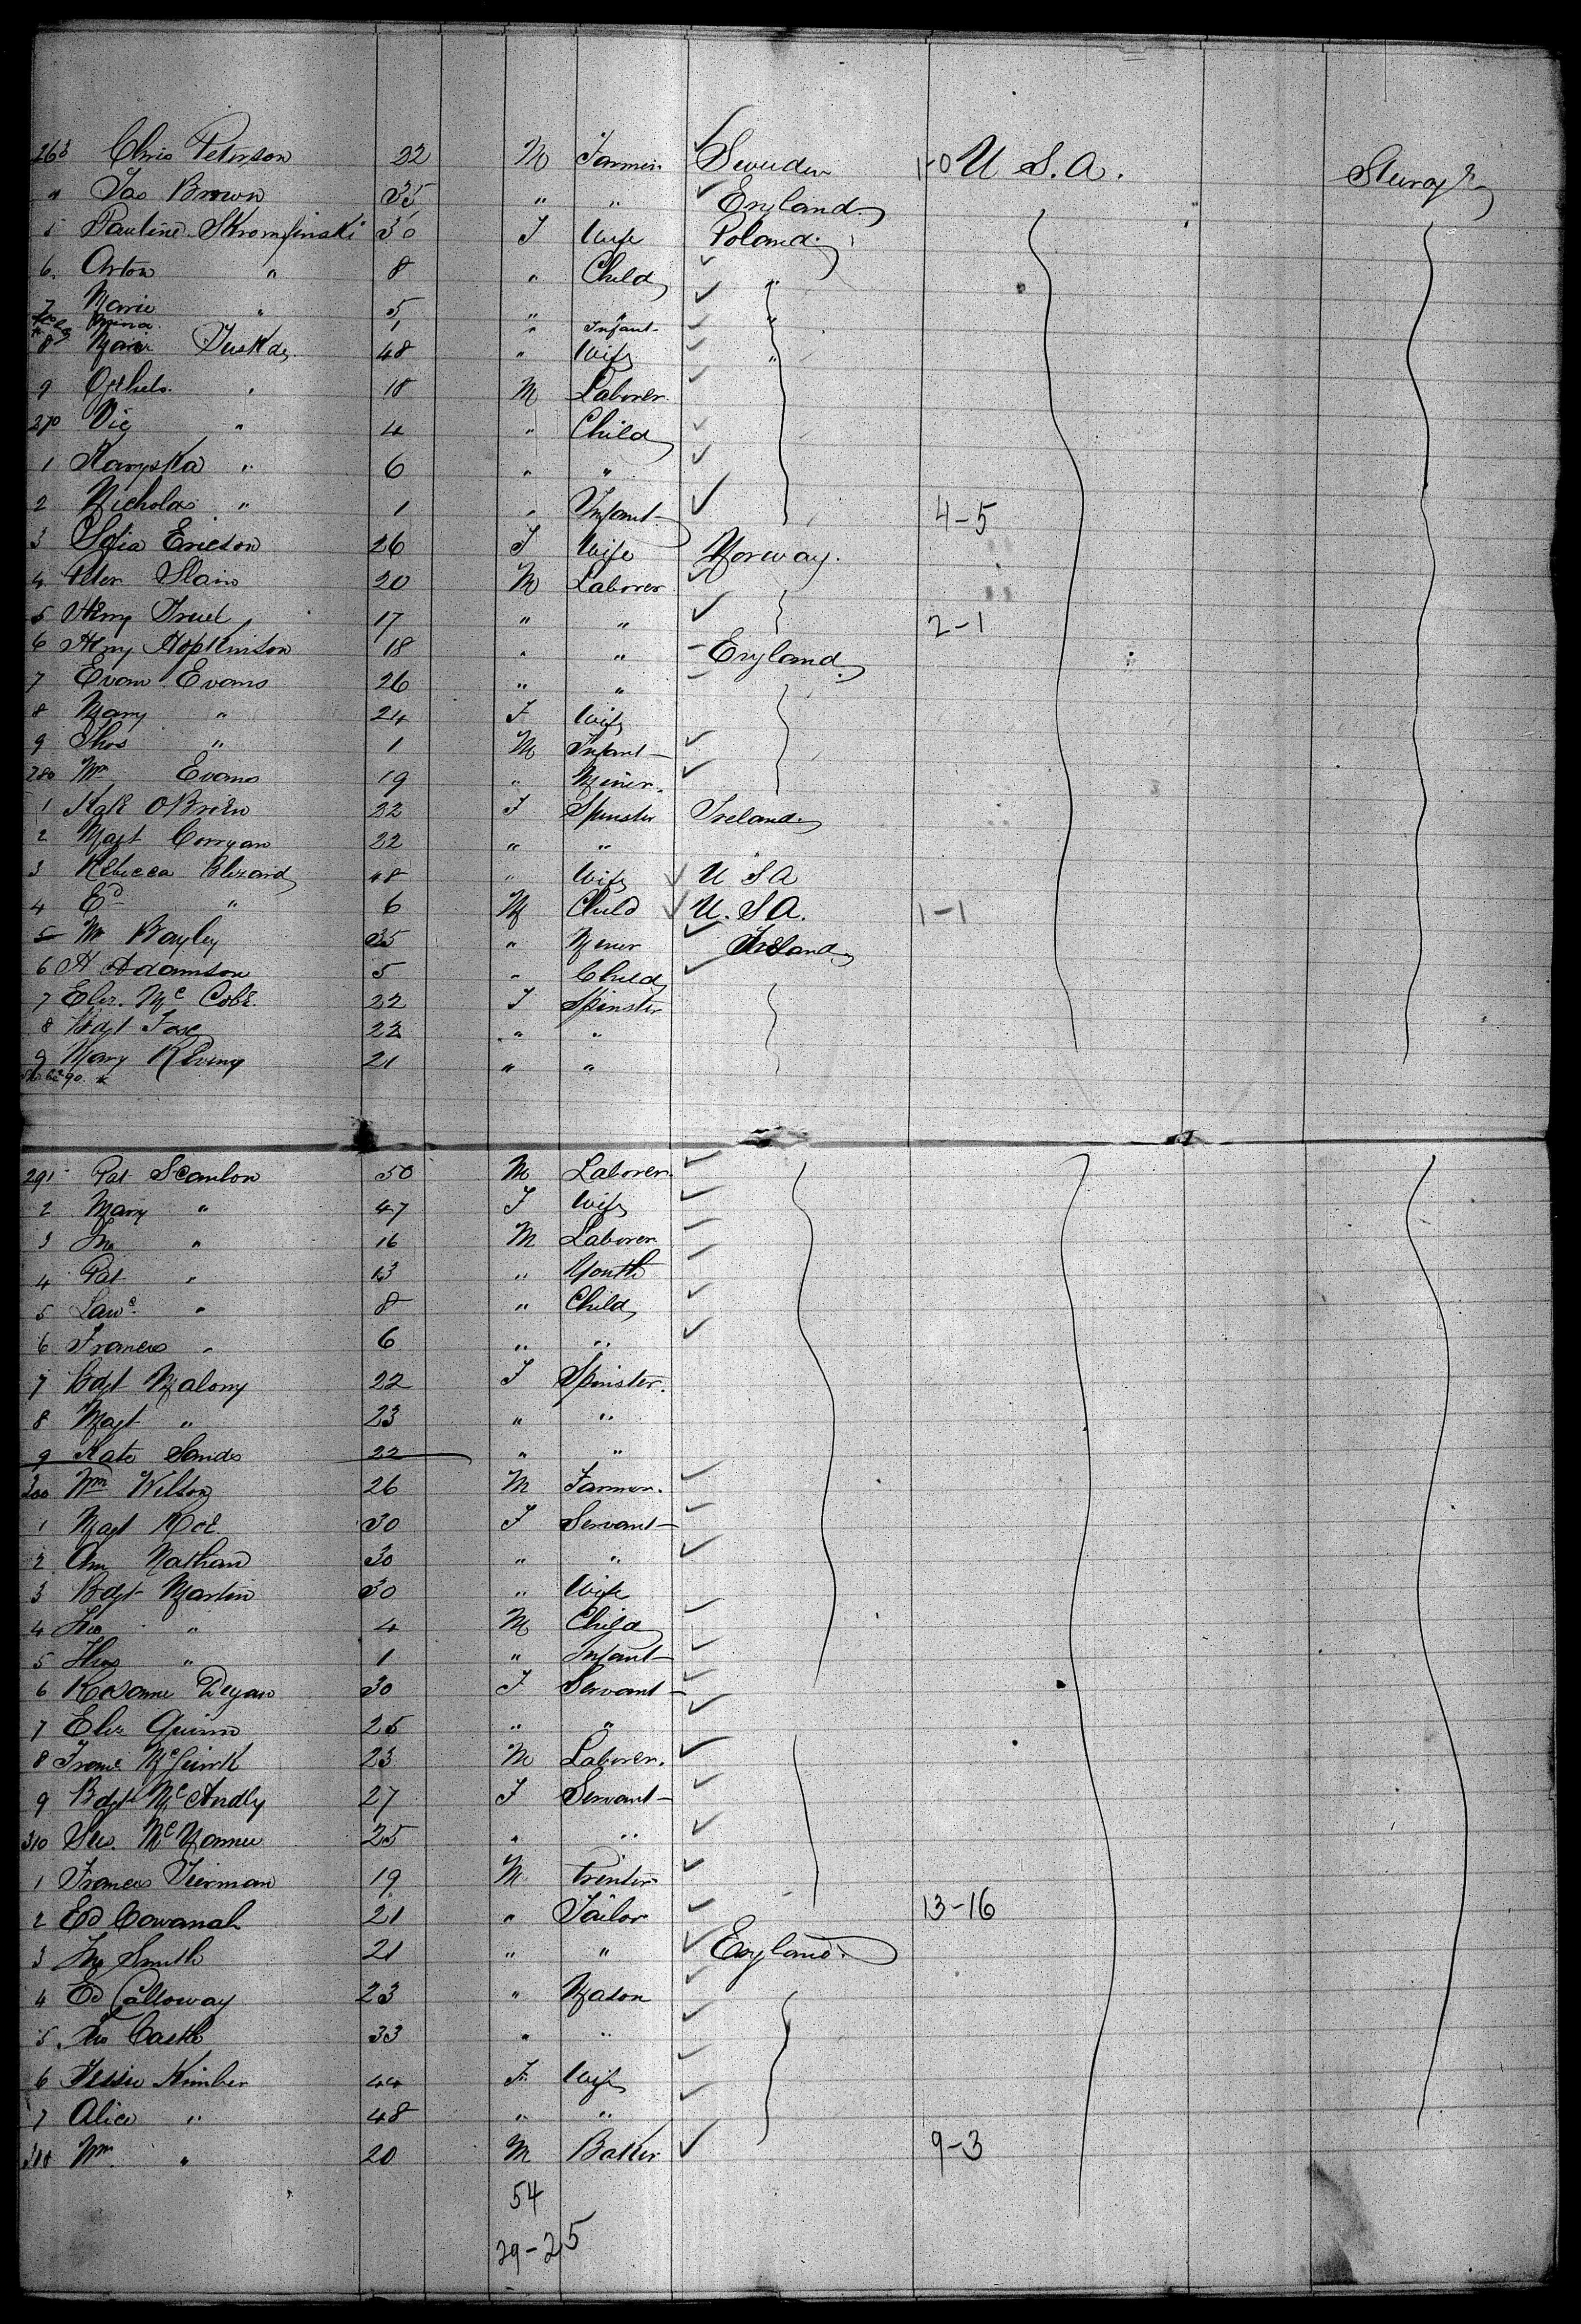 263 Chris Peterson 22 M Farmer Sweden 1-0 U S. A.
" Jas Brown 35 " " England
5 Pauline 30 F Wife Poland
6 " 8 " Child "
7 Marie " 5 " " "
Mina 1 " Infant
8 48 " Wife "
9 " 18 M Laborer
270 Vic " 4 " Child
1 " 6 " "
2 Nicholas " 1 " Infant 4-5
3 Sofia Ericson 26 F Wife Norway.
4 Peter 20 M Laborer
5 Henry 17 " " 2-1
6 Henry Hopkinson 18 " " England
7 Evan Evans 26 " "
8 Mary " 24 F Wife
9 Thos " 1 M Infant
280 Wm Evans 19 " Miner.
1 Kate OBrien 22 F Spinster Ireland
2 Magt Corrgan 22 " "
3 Rebecca Blizard 48 " Wife U S A
4 Ed " 6 M Child U. S A. 1-1
5 Wm Bayley 35 " Miner Ireland
6 A Adamson 5 " Child
7 Eliz. Mc Cobe 22 F Spinster
8 Bdgt 22 " "
9 Mary 21 " "
291 Pat Scanlon 50 M Laborer
2 Mary " 47 F Wife
3 Jno " 16 M Laborer
4 Pat " 13 " Youth
5 Lawe " 8 " Child
6 Frances " 6 " "
7 Bdgt Malony 22 F Spinster.
8 Magt " 23 " "
9 Kate Sands 22 " "
300 Wm Wilson 26 M Farmer.
1 Magt Roe 30 F Servant
2 Ann Nathan 30 " "
3 Bdgt Martin 30 " Wife
4 " 4 M Child
5 " 1 " Infant
6 Rosanne Degan 30 F Servant
7 Eliz Quinn 25 " "
8 23 M Laborer.
9 Bdgt McAndly 27 F Servant
310 25 " "
1 Frances Tierman 19 M Printer
2 Ed Cavanah 21 " Tailor 13-16
3 Jno Smith 21 " " England
4 Ed Calloway 23 " Mason
5 Castle 33 " "
6 Jessie Kimber 44 F. Wife
7 Alice " 48 " "
318 Wm " 20 M Baker 9-3
54
29-25